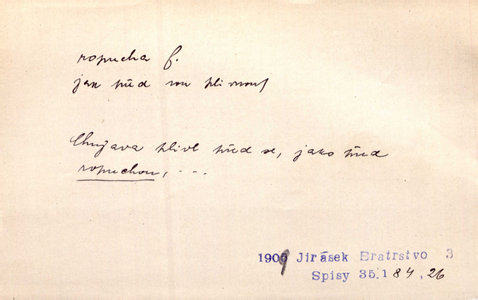 ropucha f.
jak před rou plivnouť
Chujava plivl před se, jako před
ropuchou, ---
1909 Jirásek Bratrstvo 3
Spisy 35.184,26